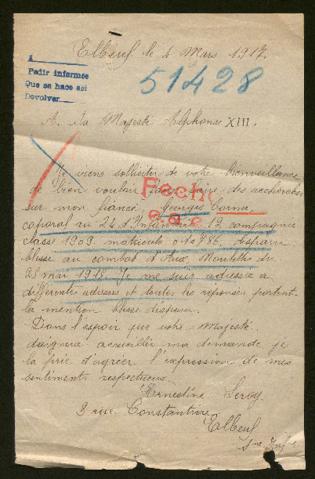 Elbeuf le 1 Mars 1917.
Pedir informes
Que se hace asi
Devolver
51428
A Sa Majesté Alphonse XIII.
Je viens solliciter de votre Bienveillance
de bien vouloir faire des recherches
Fech.
sur mon fiancé Georges
caporal au 24 d'Infanterie 12 compagnie
classe 1909 matricule
blessé au combat
28 mai Je me suis adressée a
différentes adresses et toutes les réponses portent
la mention blessé disparu.
Dans l'espoir que votre Majesté
daignera accueillir ma demande je
la prie d'agréer l'expression de mes
sentiments respectueux.
Ernestine Leroy
3 rue Constantine
Elbeuf
Sne Infre